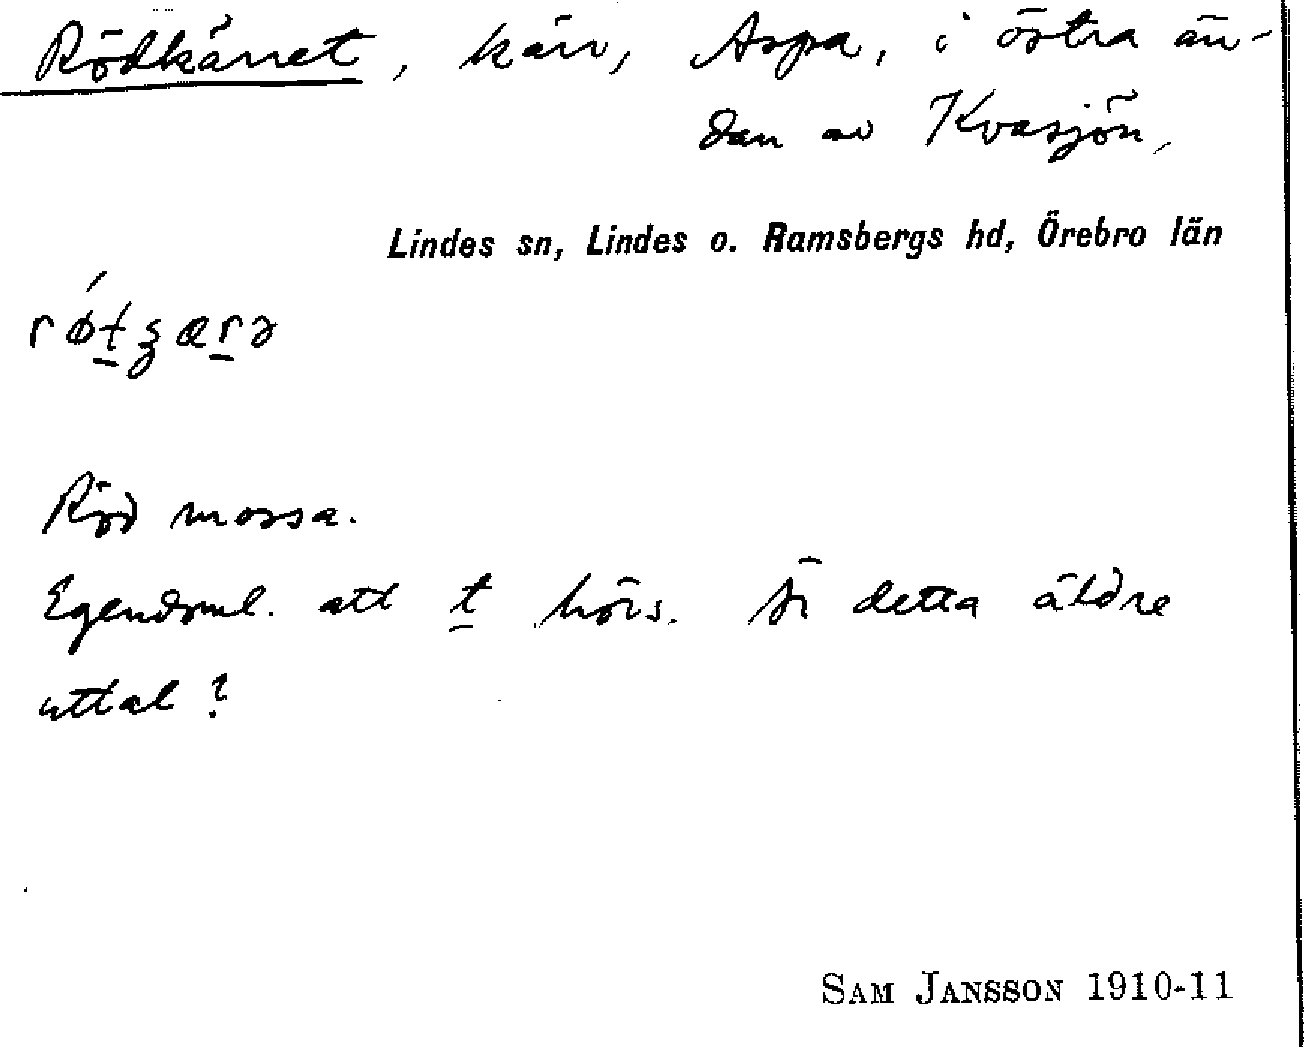 Rödkärret, kärr, Aspa, i östra än-
dan av Kvasjön,
Lindes sn, Lindes o. Ramsbergs hd, Örebro län
Röd mossa.
Egendoml. att t̲ hörs. Är detta äldre
uttal?
SAM JANSSON 1910-11